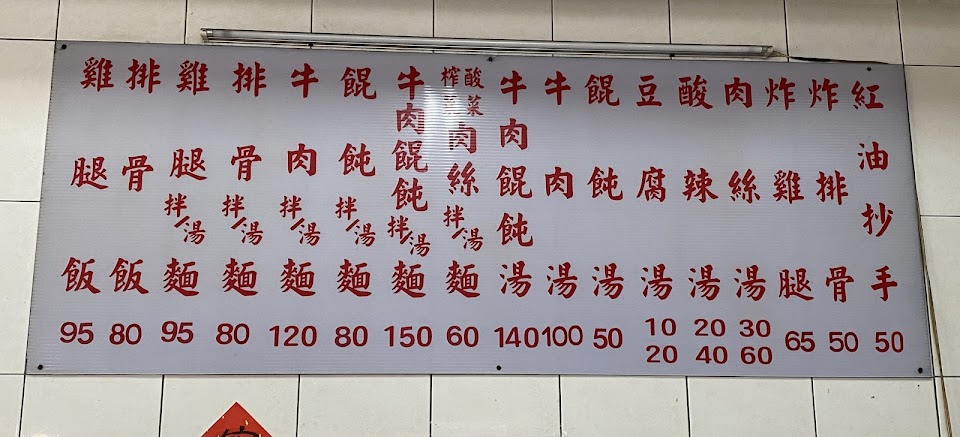 雞腿飯 95
排骨飯 80
雞腿拌/湯麵 95
排骨拌/湯麵 80
牛肉拌/湯麵 120
餛飩拌/湯麵 80
牛肉餛飩拌/湯麵 150
榨菜酸菜肉絲拌/湯麵 60
牛肉餛飩湯 140
牛肉湯 100
餛飩湯 50
豆腐湯 10 20
酸辣湯 20 40
肉絲湯 30 60
炸雞腿 65
炸排骨 50
紅油抄手 50